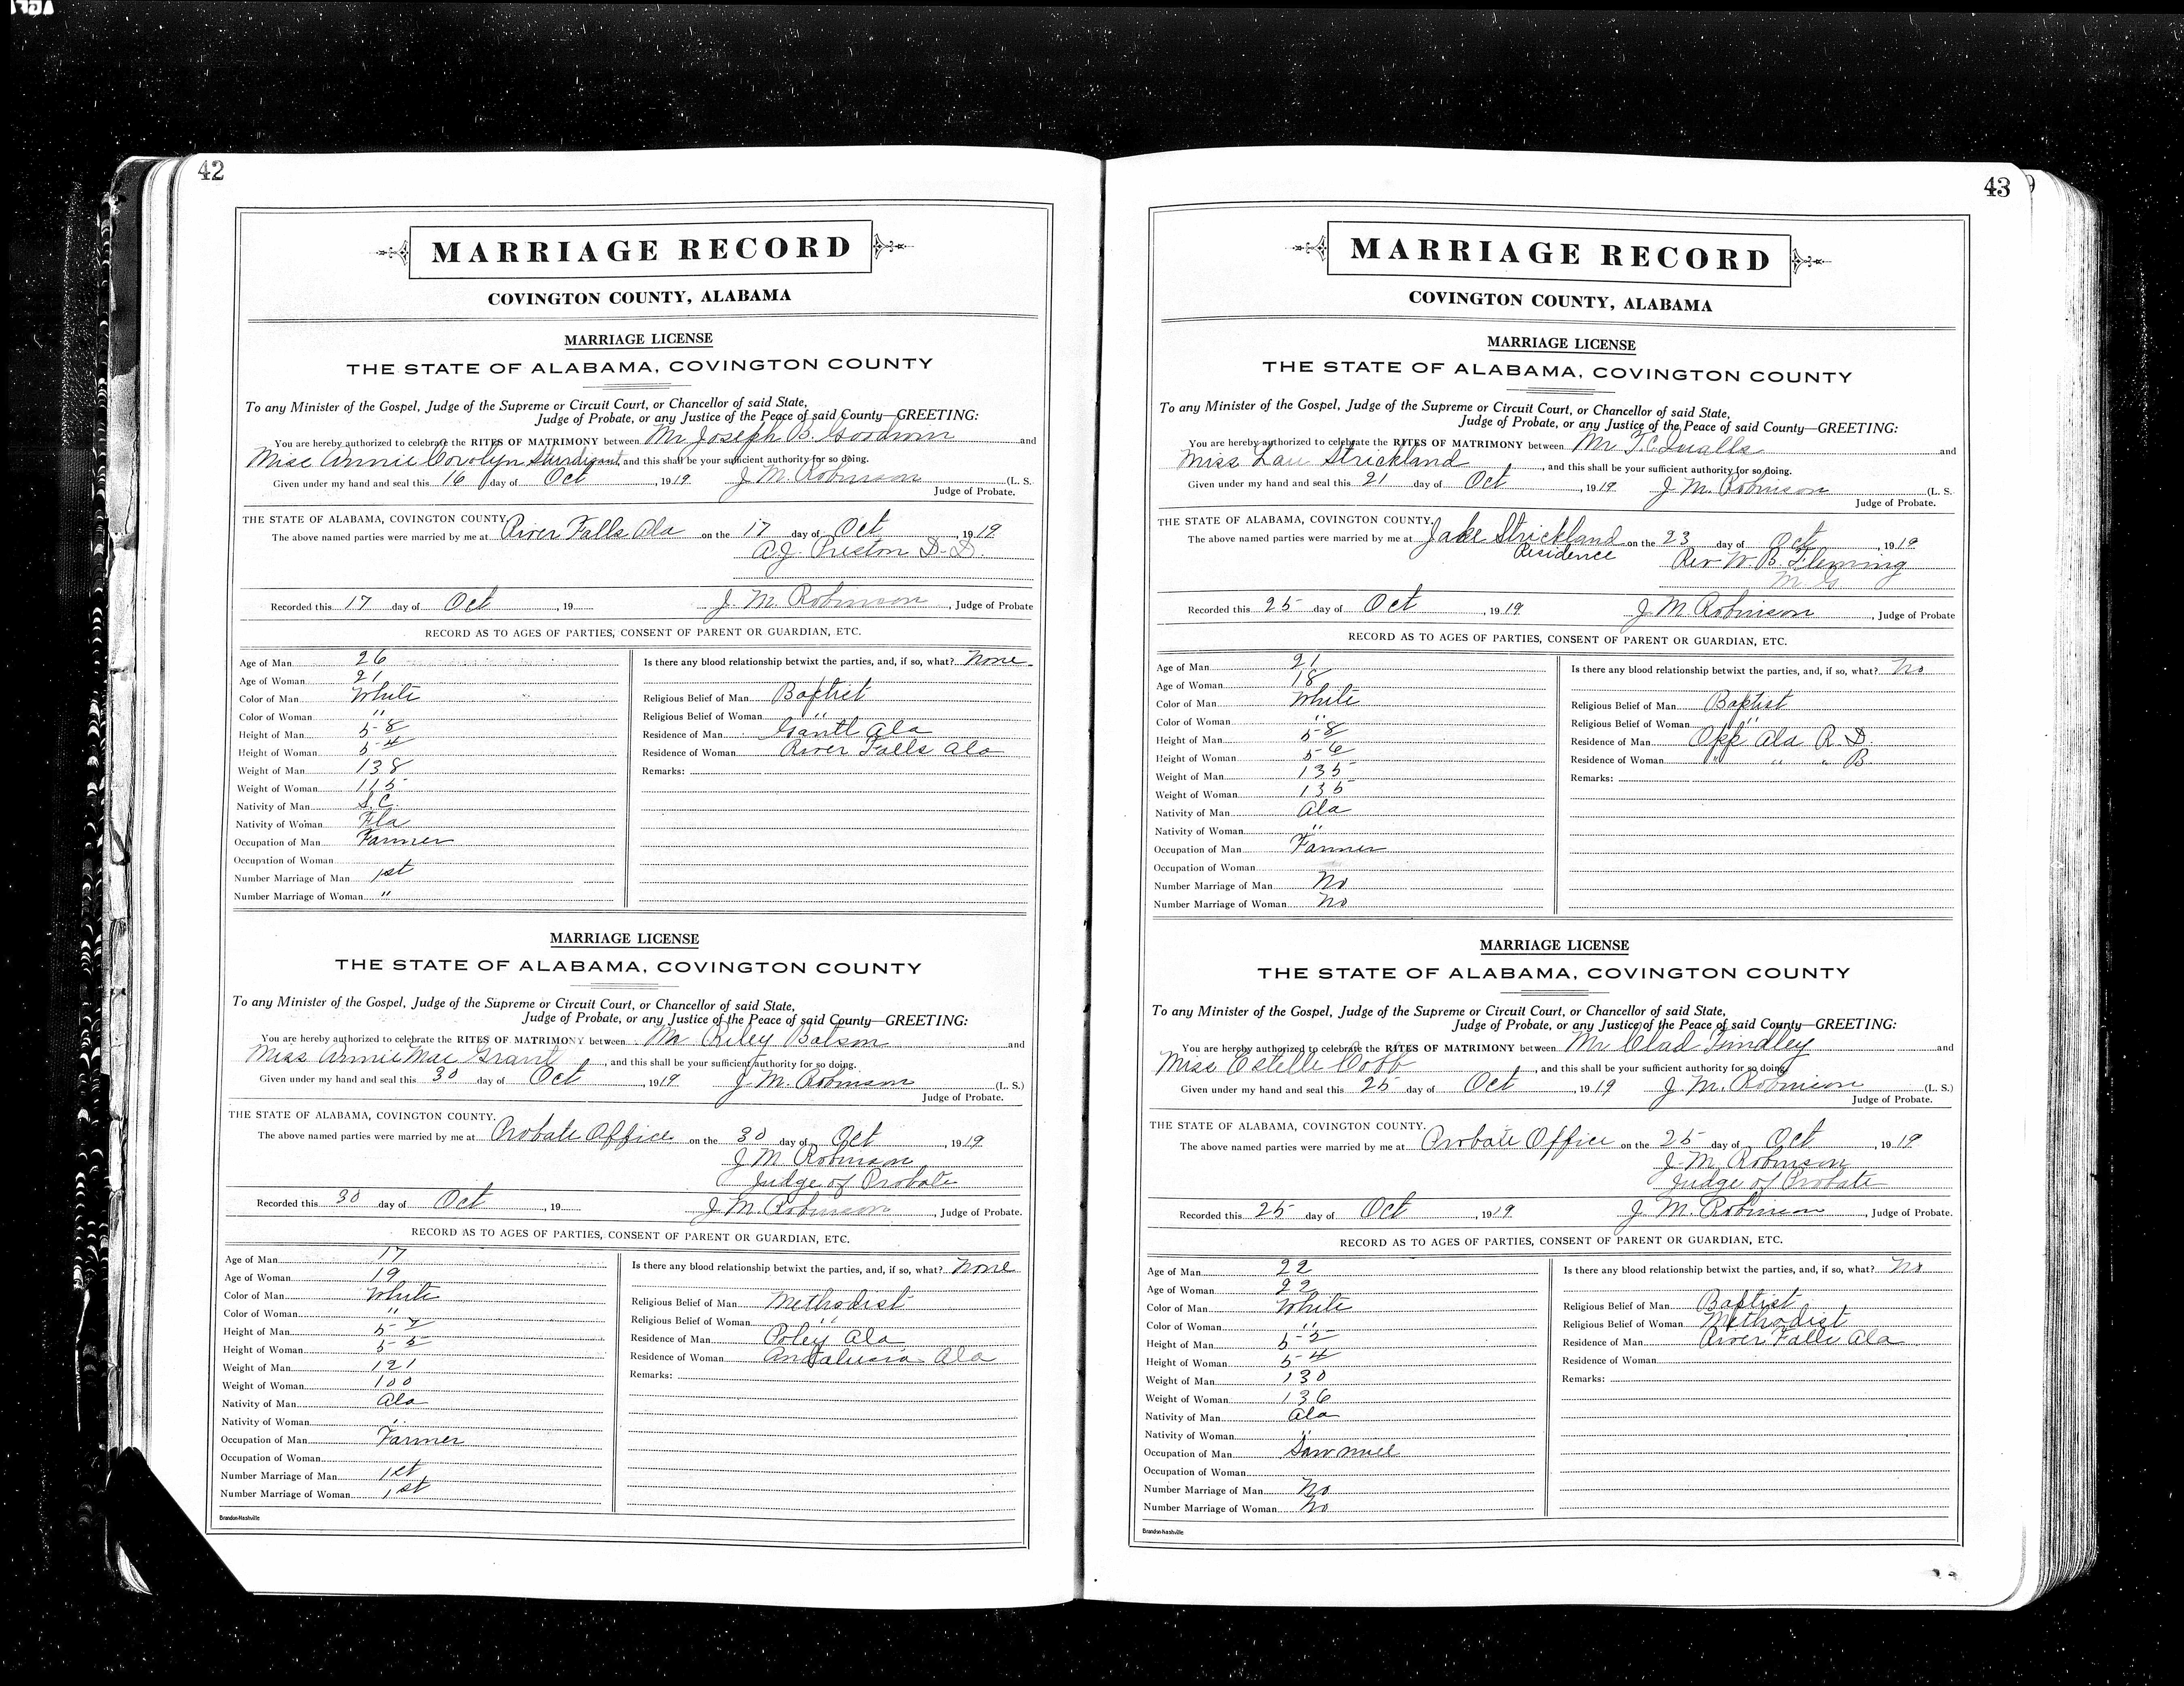 42
MARRIAGE RECORD
COVINGTON COUNTY, ALABAMA
MARRIAGE LICENSE
THE STATE OF ALABAMA, COVINGTON COUNTY
To any Minister of the Gospel, Judge of the Supreme or Circuit Court, or Chancellor of said State,
Judge of Probate, or any Justice of the Peace of said County—GREETING:
You are hereby authorized to celebrate the RITES OF MATRIMONY between Mr Joseph B. Goodwin and
Miss Annie Carolyn Sturdivant, and this shall be your sufficient authority for so doing.
Given under my hand and seal this 16 day of Oct, 1919 J. M. Robinson (L. S.
Judge of Probate.
THE STATE OF ALABAMA, COVINGTON COUNTY.
The above named parties were married by me at River Falls Ala on the 17 day of Oct, 1919
A. J. Preston D. D.
Recorded this 17 day of Oct, 19 J. M. Robinson, Judge of Probate
RECORD AS TO AGES OF PARTIES, CONSENT OF PARENT OR GUARDIAN, ETC.
Age of Man 26
Age of Woman 21
Color of Man White
Color of Woman "
Height of Man 5-8
Height of Woman 5-4
Weight of Man 138
Weight of Woman 115
Nativity of Man S.C.
Nativity of Woman Fla
Occupation of Man Farmer
Occupation of Woman
Number Marriage of Man 1st
Number Marriage of Woman "
Is there any blood relationship betwixt the parties, and, if so, what? None
Religious Belief of Man Baptist
Religious Belief of Woman "
Residence of Man Gantt Ala
Residence of Woman River Falls Ala
Remarks:
MARRIAGE LICENSE
THE STATE OF ALABAMA, COVINGTON COUNTY
To any Minister of the Gospel, Judge of the Supreme or Circuit Court, or Chancellor of said State,
Judge of Probate, or any Justice of the Peace of said County—GREETING:
You are hereby authorized to celebrate the RITES OF MATRIMONY between Mr Riley Batson and
Miss Annie Mae Grant, and this shall be your sufficient authority for so doing.
Given under my hand and seal this 30 day of Oct, 1919 J. M. Robinson (L. S.)
Judge of Probate.
THE STATE OF ALABAMA, COVINGTON COUNTY.
The above named parties were married by me at Probate Office on the 30 day of Oct, 1919
J M Robinson
Judge of Probate
Recorded this 30 day of Oct, 19 J. M. Robinson, Judge of Probate.
RECORD AS TO AGES OF PARTIES, CONSENT OF PARENT OR GUARDIAN, ETC.
Age of Man 17
Age of Woman 19
Color of Man White
Color of Woman "
Height of Man 5-7
Height of Woman 5-5
Weight of Man 121
Weight of Woman 100
Nativity of Man Ala
Nativity of Woman "
Occupation of Man Farmer
Occupation of Woman
Number Marriage of Man 1st
Number Marriage of Woman 1st
Is there any blood relationship betwixt the parties, and, if so, what? None
Religious Belief of Man Methodist
Religious Belief of Woman "
Residence of Man Poley Ala
Residence of Woman Andalusia Ala
Remarks:
Brandon-Nashville
43
MARRIAGE RECORD
COVINGTON COUNTY, ALABAMA
MARRIAGE LICENSE
THE STATE OF ALABAMA, COVINGTON COUNTY
To any Minister of the Gospel, Judge of the Supreme or Circuit Court, or Chancellor of said State,
Judge of Probate, or any Justice of the Peace of said County—GREETING:
You are hereby authorized to celebrate the RITES OF MATRIMONY between Mr T. C. Qualls and
Miss Lau Strickland, and this shall be your sufficient authority for so doing.
Given under my hand and seal this 21 day of Oct, 1919 J. M. Robinson (L. S.
Judge of Probate.
THE STATE OF ALABAMA, COVINGTON COUNTY.
The above named parties were married by me at Jake Strickland on the 23 day of Oct, 1919
Residence Rev W. B. Fleming
M G
Recorded this 25 day of Oct, 1919 J M. Robinson, Judge of Probate
RECORD AS TO AGES OF PARTIES, CONSENT OF PARENT OR GUARDIAN, ETC.
Age of Man 21
Age of Woman 18
Color of Man White
Color of Woman "
Height of Man 5-8
Height of Woman 5-6
Weight of Man 135
Weight of Woman 135
Nativity of Man Ala
Nativity of Woman "
Occupation of Man Farmer
Occupation of Woman
Number Marriage of Man No
Number Marriage of Woman No
Is there any blood relationship betwixt the parties, and, if so, what? No
Religious Belief of Man Baptist
Religious Belief of Woman "
Residence of Man Opp Ala R. D.
Residence of Woman " " " B
Remarks:
MARRIAGE LICENSE
THE STATE OF ALABAMA, COVINGTON COUNTY
To any Minister of the Gospel, Judge of the Supreme or Circuit Court, or Chancellor of said State,
Judge of Probate, or any Justice of the Peace of said County—GREETING:
You are hereby authorized to celebrate the RITES OF MATRIMONY between Mr Clad Findley and
Miss Estelle Cobb, and this shall be your sufficient authority for so doing.
Given under my hand and seal this 25 day of Oct, 1919 J. M. Robinson (L. S.)
Judge of Probate.
THE STATE OF ALABAMA, COVINGTON COUNTY.
The above named parties were married by me at Probate Office on the 25 day of Oct, 1919
J. M. Robinson
Judge of Probate
Recorded this 25 day of Oct, 1919 J. M. Robinson, Judge of Probate.
RECORD AS TO AGES OF PARTIES, CONSENT OF PARENT OR GUARDIAN, ETC.
Age of Man 22
Age of Woman 22
Color of Man White
Color of Woman "
Height of Man 5-5
Height of Woman 5-4
Weight of Man 130
Weight of Woman 136
Nativity of Man Ala
Nativity of Woman "
Occupation of Man Saw mill
Occupation of Woman
Number Marriage of Man No
Number Marriage of Woman No
Is there any blood relationship betwixt the parties, and, if so, what? No
Religious Belief of Man Baptist
Religious Belief of Woman Methodist
Residence of Man River Falls Ala
Residence of Woman
Remarks:
Brandon-Nashville